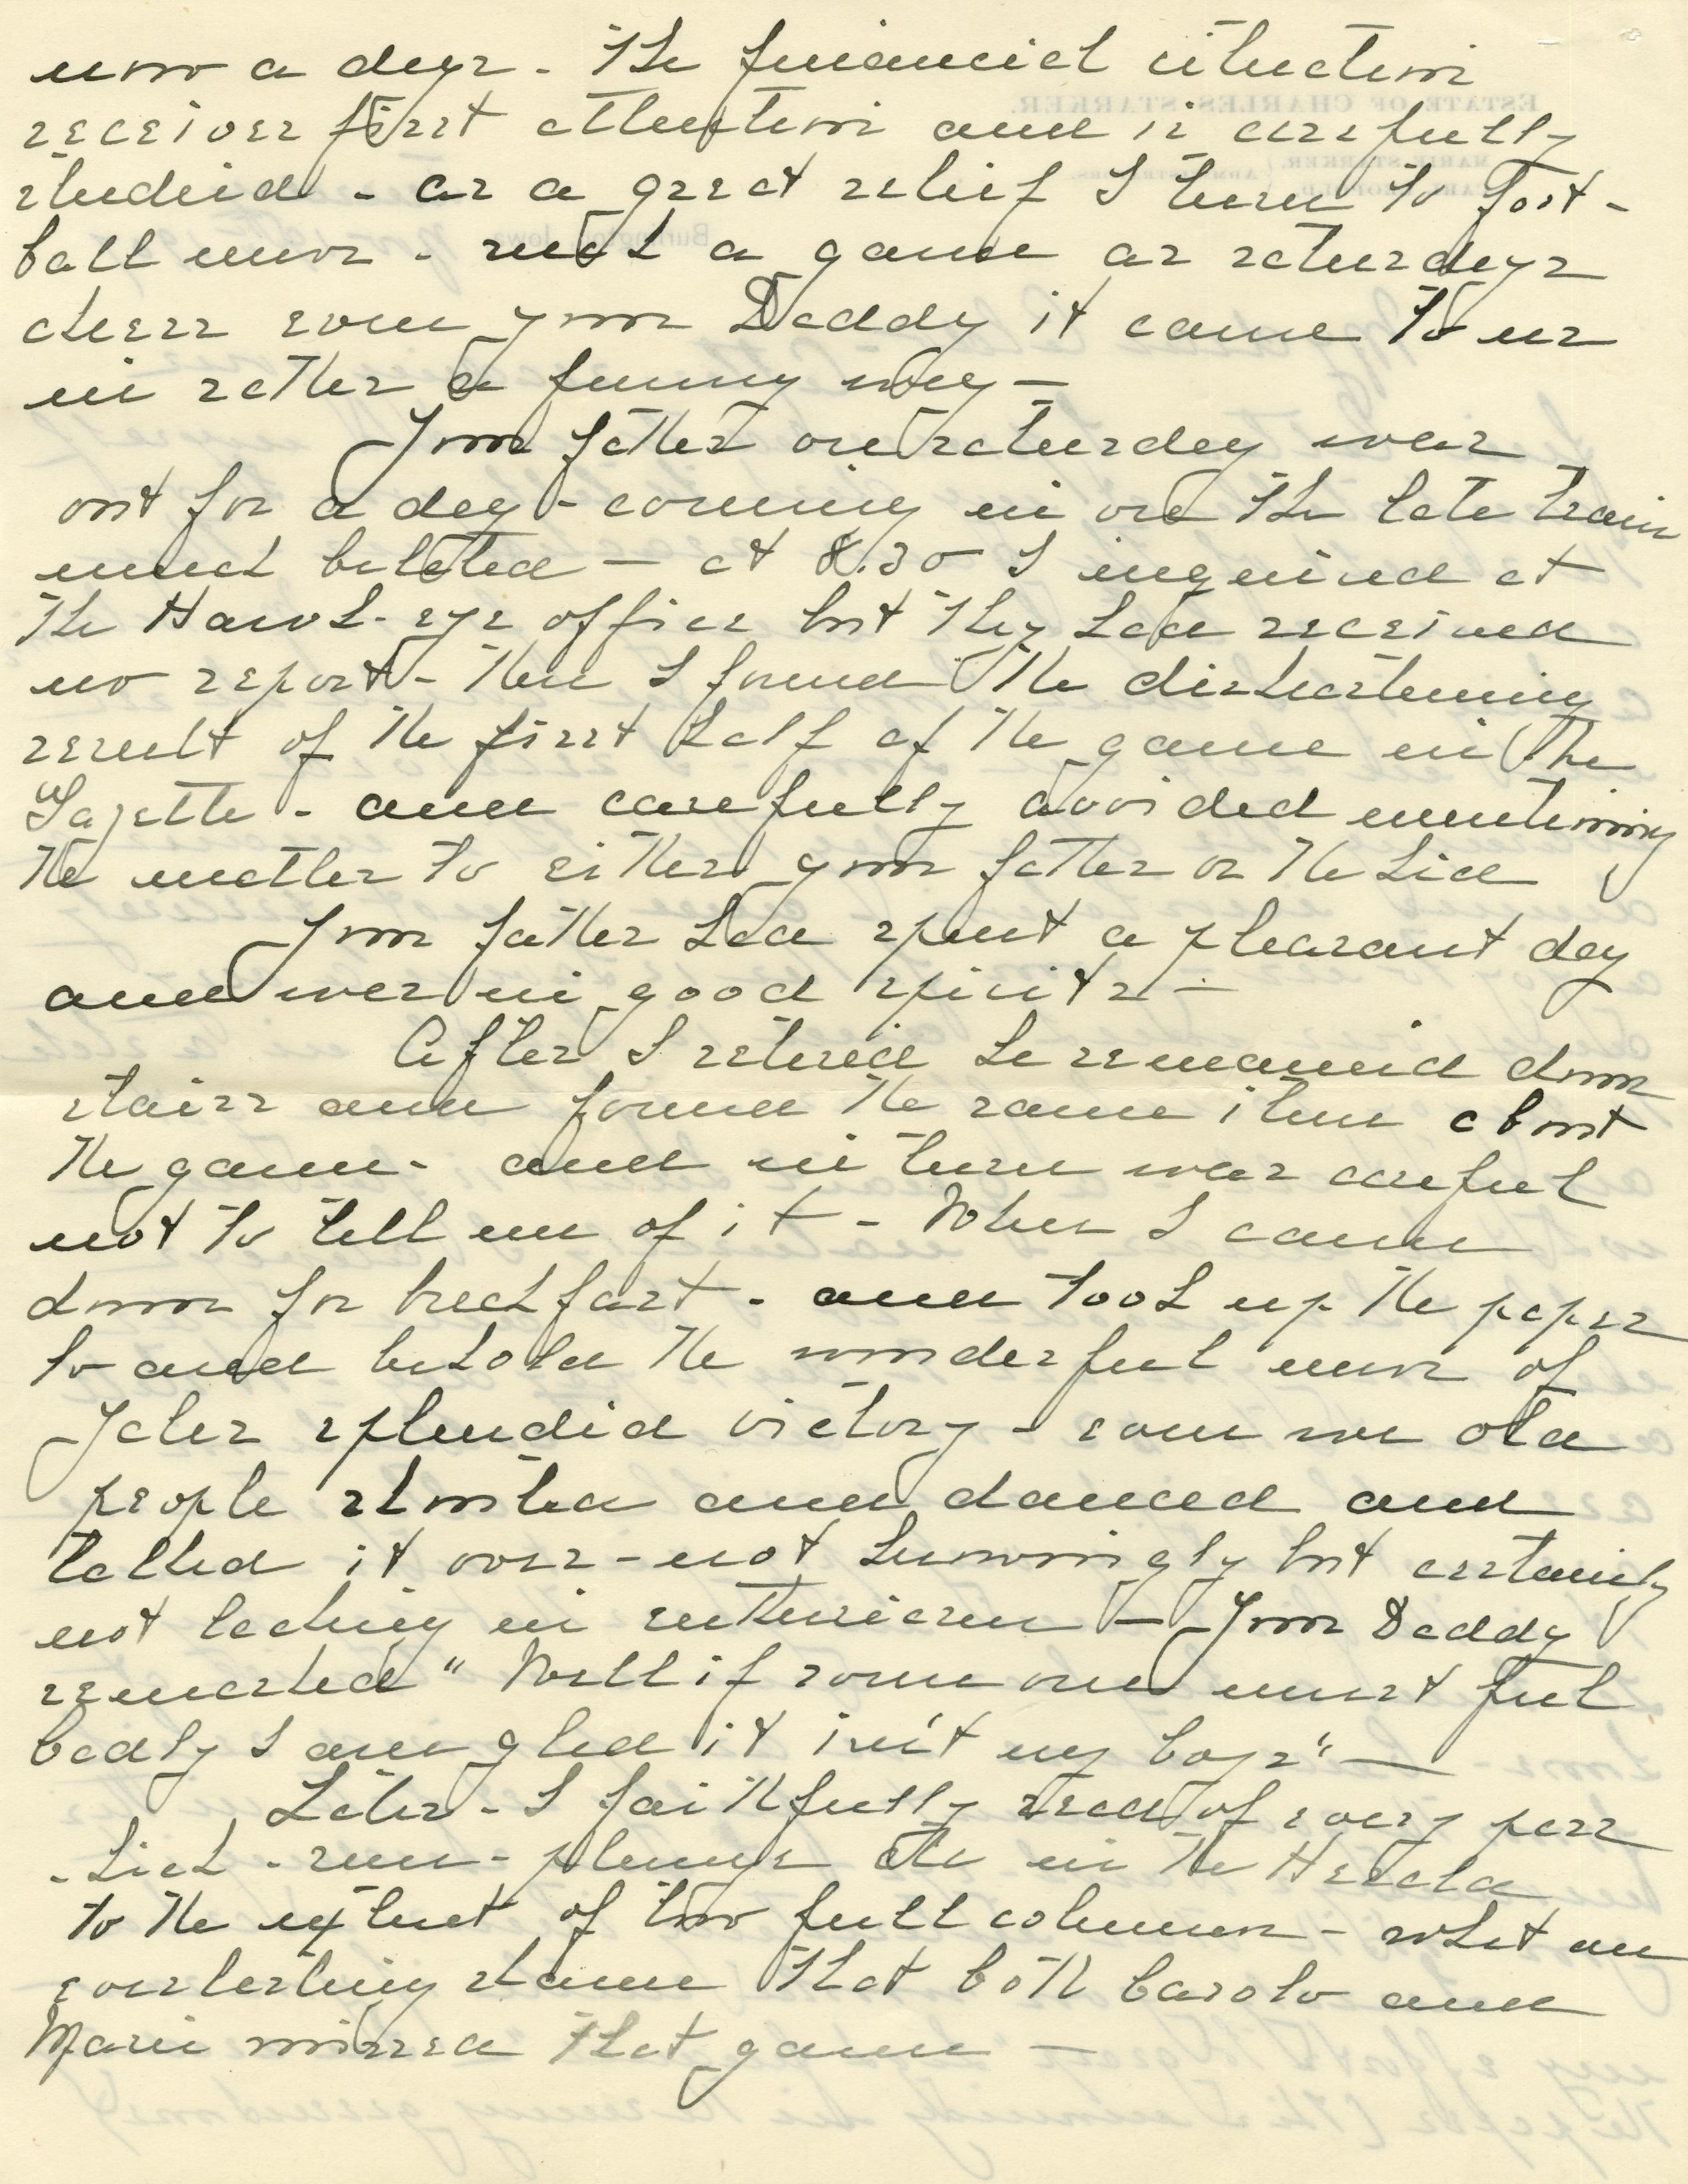 now a days. The financial situation
receives first attention and is carefully
studied - as a great relief I turn to foot-
ball news. such a game as saturdays
cheers even your Daddy it came to us
in rather a funny way -
Your father on saturday was
out for a day - coming in on the late train
much belated - at 8.30 I inquired at
the Hawk-eye office but they had received
no report - then I found the disheartening
result of the first half of the game in the
Gazette. and carefully avoided mentioning
the matter to either your father or the kid
Your father had spent a pleasant day
and was in good spirits -
After I retired he remained down
stairs and found the same item about
the game. and in turn was careful
not to tell me of it - When I came
down for breakfast. and took up the paper
lo and behold the wonderful news of
Yales splendid victory - even we old
people shouted and danced and
talked it over - not knowingly but certainly
not lacking in enthusiasm - Your Daddy
remarked "Well if some one must feel
badly I am glad it isn't my boys" -
Later - I faithfully read of every pass
. kick - run - plunge etc in the Herald
to the extent of two full columns - what an
everlasting shame that both Carolo and
Marie missed that game -
ESTATE OF CHARLES STARKER.
MARIE STARKER,
Burlington, Iowa